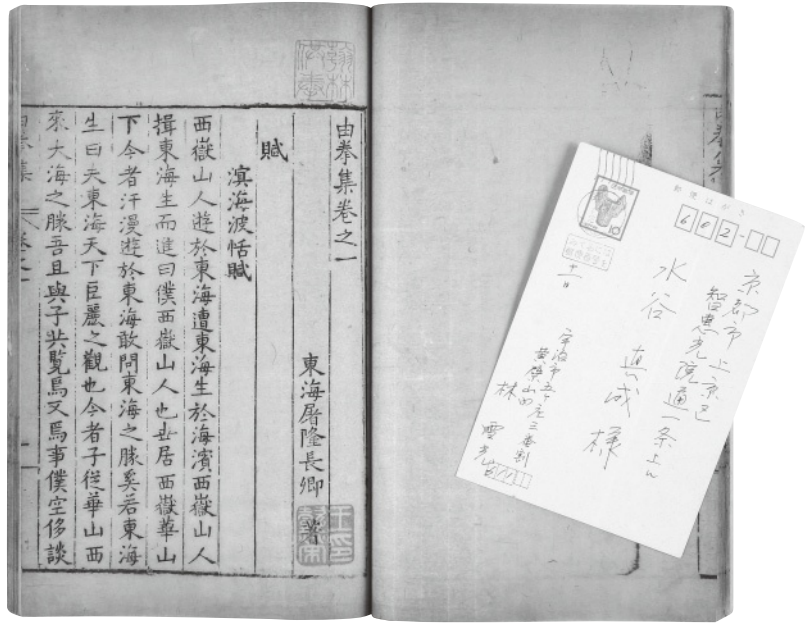 由拳集卷之一
東海屠隆長卿著
賦
溟海波恬賦
西嶽山人遊於東海遭東海生於海濱西嶽山人
揖東海生而進曰僕西嶽山人也世居西嶽華山
下今者汗漫遊於東海敢問東海之勝奚若東海
生曰夫東海天下巨麗之觀也今者子從華山西
來大海之勝吾且與子共覽焉又焉事僕空侈談
翰林
郵便はがき
602
10
京都市上京区
智恵光院通一条上ル
水谷真成様
十一日
宇治市五ケ庄三番割
黄檗山内
林雪光